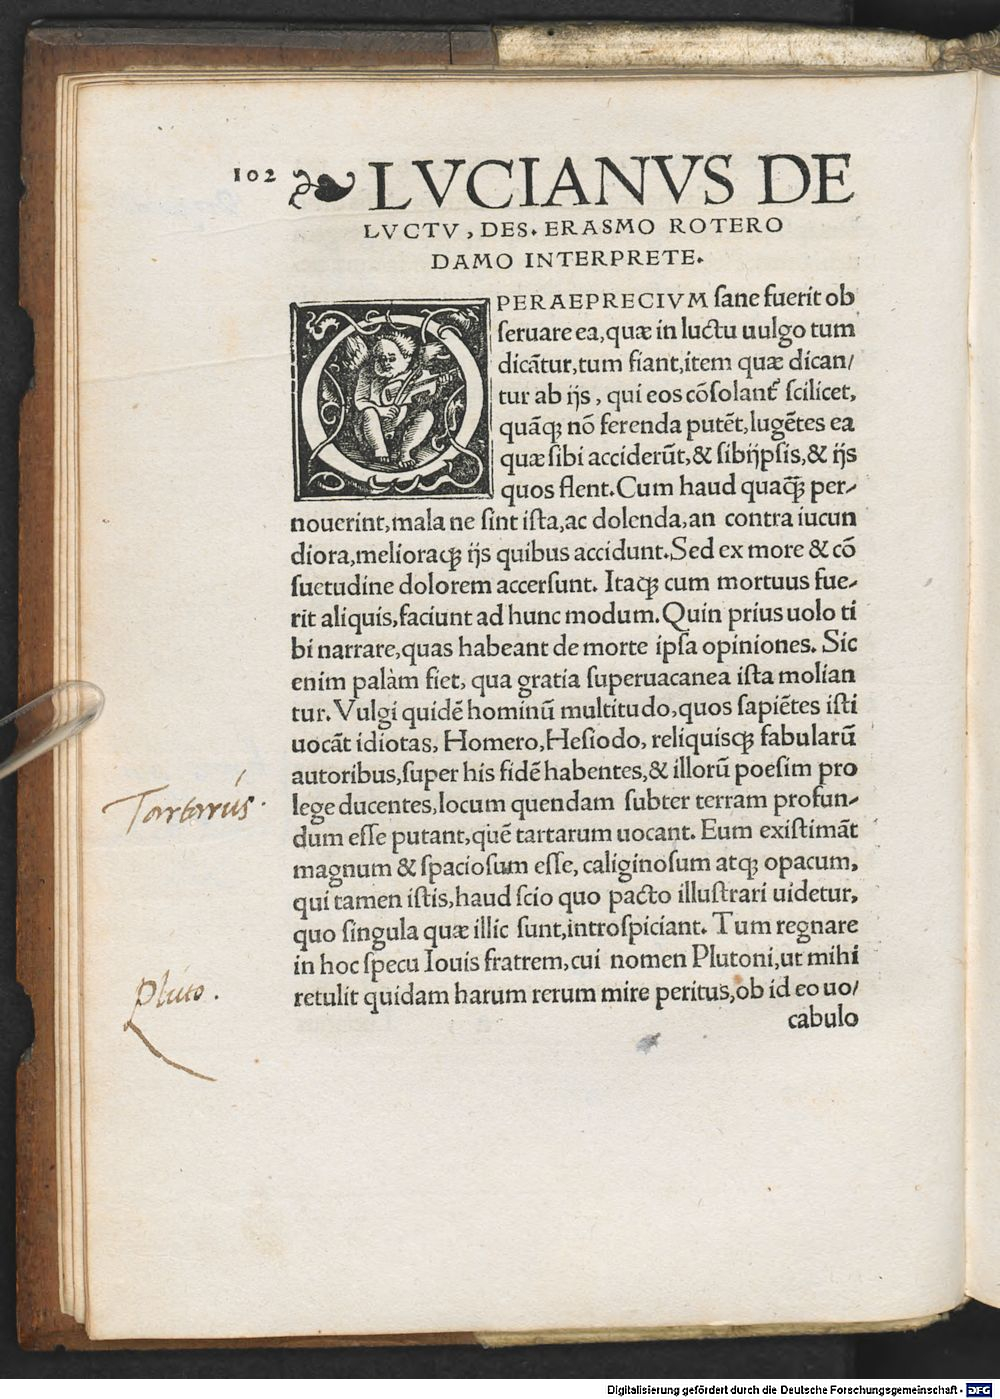 102 ❧ LVCIANVS DE
LVCTV, DES. ERASMO ROTERO
DAMO INTERPRETE.
OPERAEPRECIVM sane fuerit ob
seruare ea, quæ in luctu uulgo tum
dicātur, tum fiant, item quæ dican/
tur ab ijs, qui eos cōsolant᷑ scilicet,
quāqꝫ nō ferenda putēt, lugētes ea
quæ sibi acciderūt, & sibijpsis, & ijs
quos flent. Cum haud quaqꝫ̄ per-
nouerint, mala ne sint ista, ac dolenda, an contra iucun
diora, melioraqꝫ ijs quibus accidunt. Sed ex more & cō
suetudine dolorem accersunt. Itaqꝫ cum mortuus fue-
rit aliquis, faciunt ad hunc modum. Quin prius uolo ti
bi narrare, quas habeant de morte ipsa opiniones. Sic
enim palàm fiet, qua gratia superuacanea ista molian
tur. Vulgi quidē hominū multitudo, quos sapiētes isti
uocāt idiotas, Homero, Hesiodo, reliquisqꝫ fabularū
autoribus, super his fidē habentes, & illorū poesim pro
lege ducentes, locum quendam subter terram profun-
dum esse putant, quē tartarum uocant. Eum existimāt
magnum & spaciosum esse, caliginosum atqꝫ opacum,
qui tamen istis, haud scio quo pacto illustrari uidetur,
quo singula quæ illic sunt, introspiciant. Tum regnare
in hoc specu Iouis fratrem, cui nomen Plutoni, ut mihi
retulit quidam harum rerum mire peritus, ob id eo uo/
cabulo
Tartarus.
Pluto.
Digitalisierung gefördert durch die Deutsche Forschungsgemeinschaft - DFG